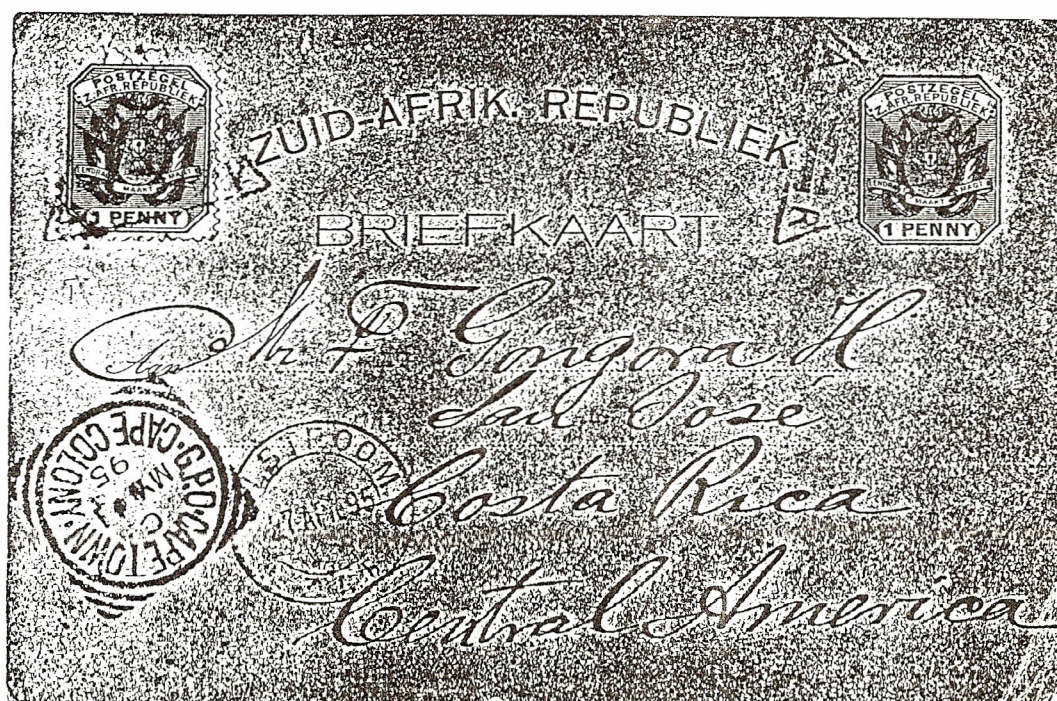 POSTZEGEL
Z.AFR.REPUBLIEK
MAAKT
1 PENNY
ZUID-AFRIK. REPUBLIEK
POSTZEGEL
Z.AFR.REPUBLIEK
MAAKT
1 PENNY
BRIEFKAART
Mr F Gongora H
San José
Costa Rica
Central America
G.P.O. CAPE TOWN. CAPE COLONY.
MY
95